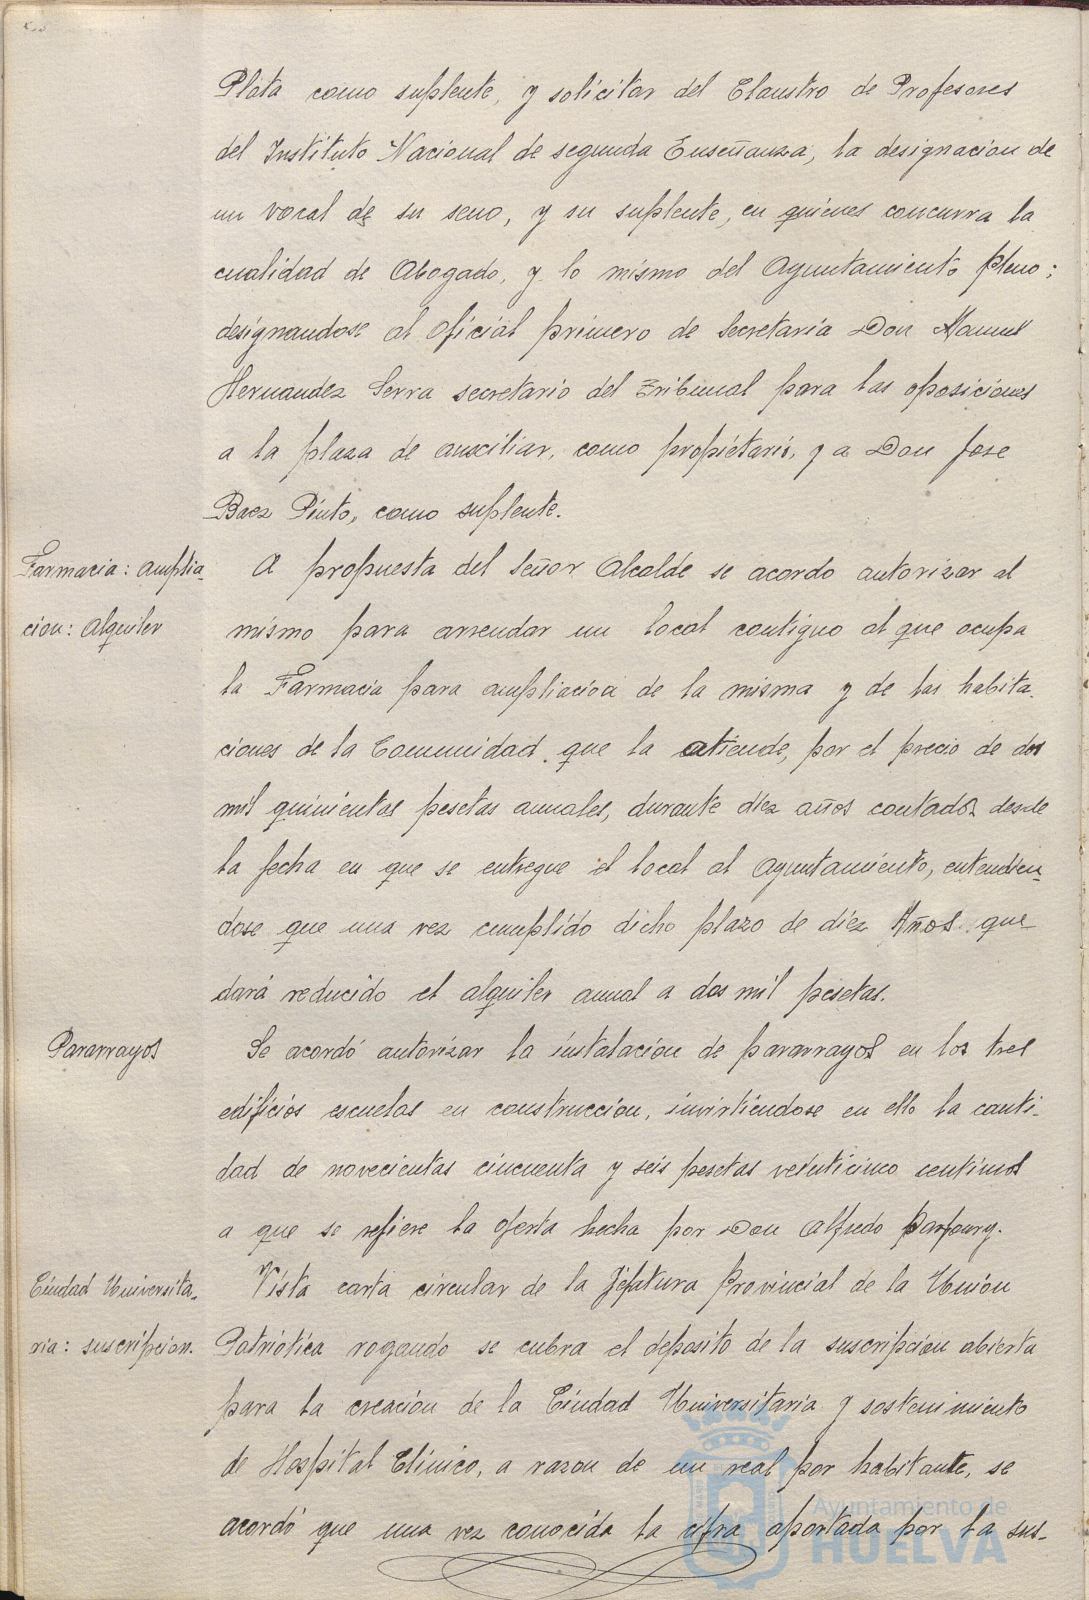 Plata como suplente, y solicitar del Claustro de Profesores
del Instituto Nacional de segunda Enseñanza, la designacion de
un vocal de su seno, y su suplente, en quienes concurra la
cualidad de Abogado, y lo mismo del Ayuntamiento Pleno;
designandose al Oficial primero de Secretaria Don Manuel
Hernandez Serra secretario del Tribunal para las oposiciones
a la plaza de auxiliar, como propietario, y a Don Jose
Baez Pinto, como suplente.
Farmacia: amplia-
cion: Alquiler
A propuesta del Señor Alcalde se acordo autorizar al
mismo para arrendar un local contiguo al que ocupa
la Farmacia para ampliacion de la misma y de las habita-
ciones de la Comunidad que la atiende, por el precio de dos
mil quinientas pesetas anuales, durante diez años contados desde
la fecha en que se entregue el local al Ayuntamiento, entendien-
dose que una vez cumplido dicho plazo de diez Años que
dará reducido el alquiler anual a dos mil pesetas.
Pararrayos
Se acordó autorizar la instalacion de pararrayos en los tres
edificios escuelas en construccion, invirtiendose en ello la canti-
dad de novecientas cincuenta y seis pesetas veinticinco centimos
a que se refiere la oferta hecha por Don Alfredo
Ciudad Universita-
ria: suscripcion.
Vista carta circular de la Jefatura Provincial de la Union
Patriótica rogando se cubra el deposito de la suscripcion abierta
para la creacion de la Ciudad Universitaria y sostenimiento
de Hospital Clinico, a razon de un real por habitante, se
acordó que una vez conocida la cifra aportada por la sus-
Ayuntamiento de
HUELVA